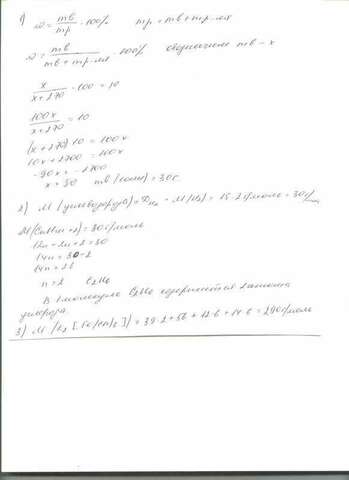 1) ω = mв/mр · 100%   mр = mв + mр-ля
ω = mв/(mв + mр-ля) · 100%   обозначим mв - x
x/(x+270) · 100 = 10
100x/(x+270) = 10
(x+270)10 = 100x
10x + 2700 = 100x
-90x = -2700
x = 30   mв (соли) = 30г.
2) M (углеводорода) = D H2 · M(H2) = 15·2г/моль = 30г/моль
M(CnH2n+2) = 30г/моль
12n + 2n + 2 = 30
14n = 30-2
14n = 28
n = 2   C2H6
В 1 молекуле C2H6 содержится 2 атома
углерода.
3) M (K4[Fe(CN)6]) = 39·2 + 56 + 12·6 + 14·6 = 290г/моль